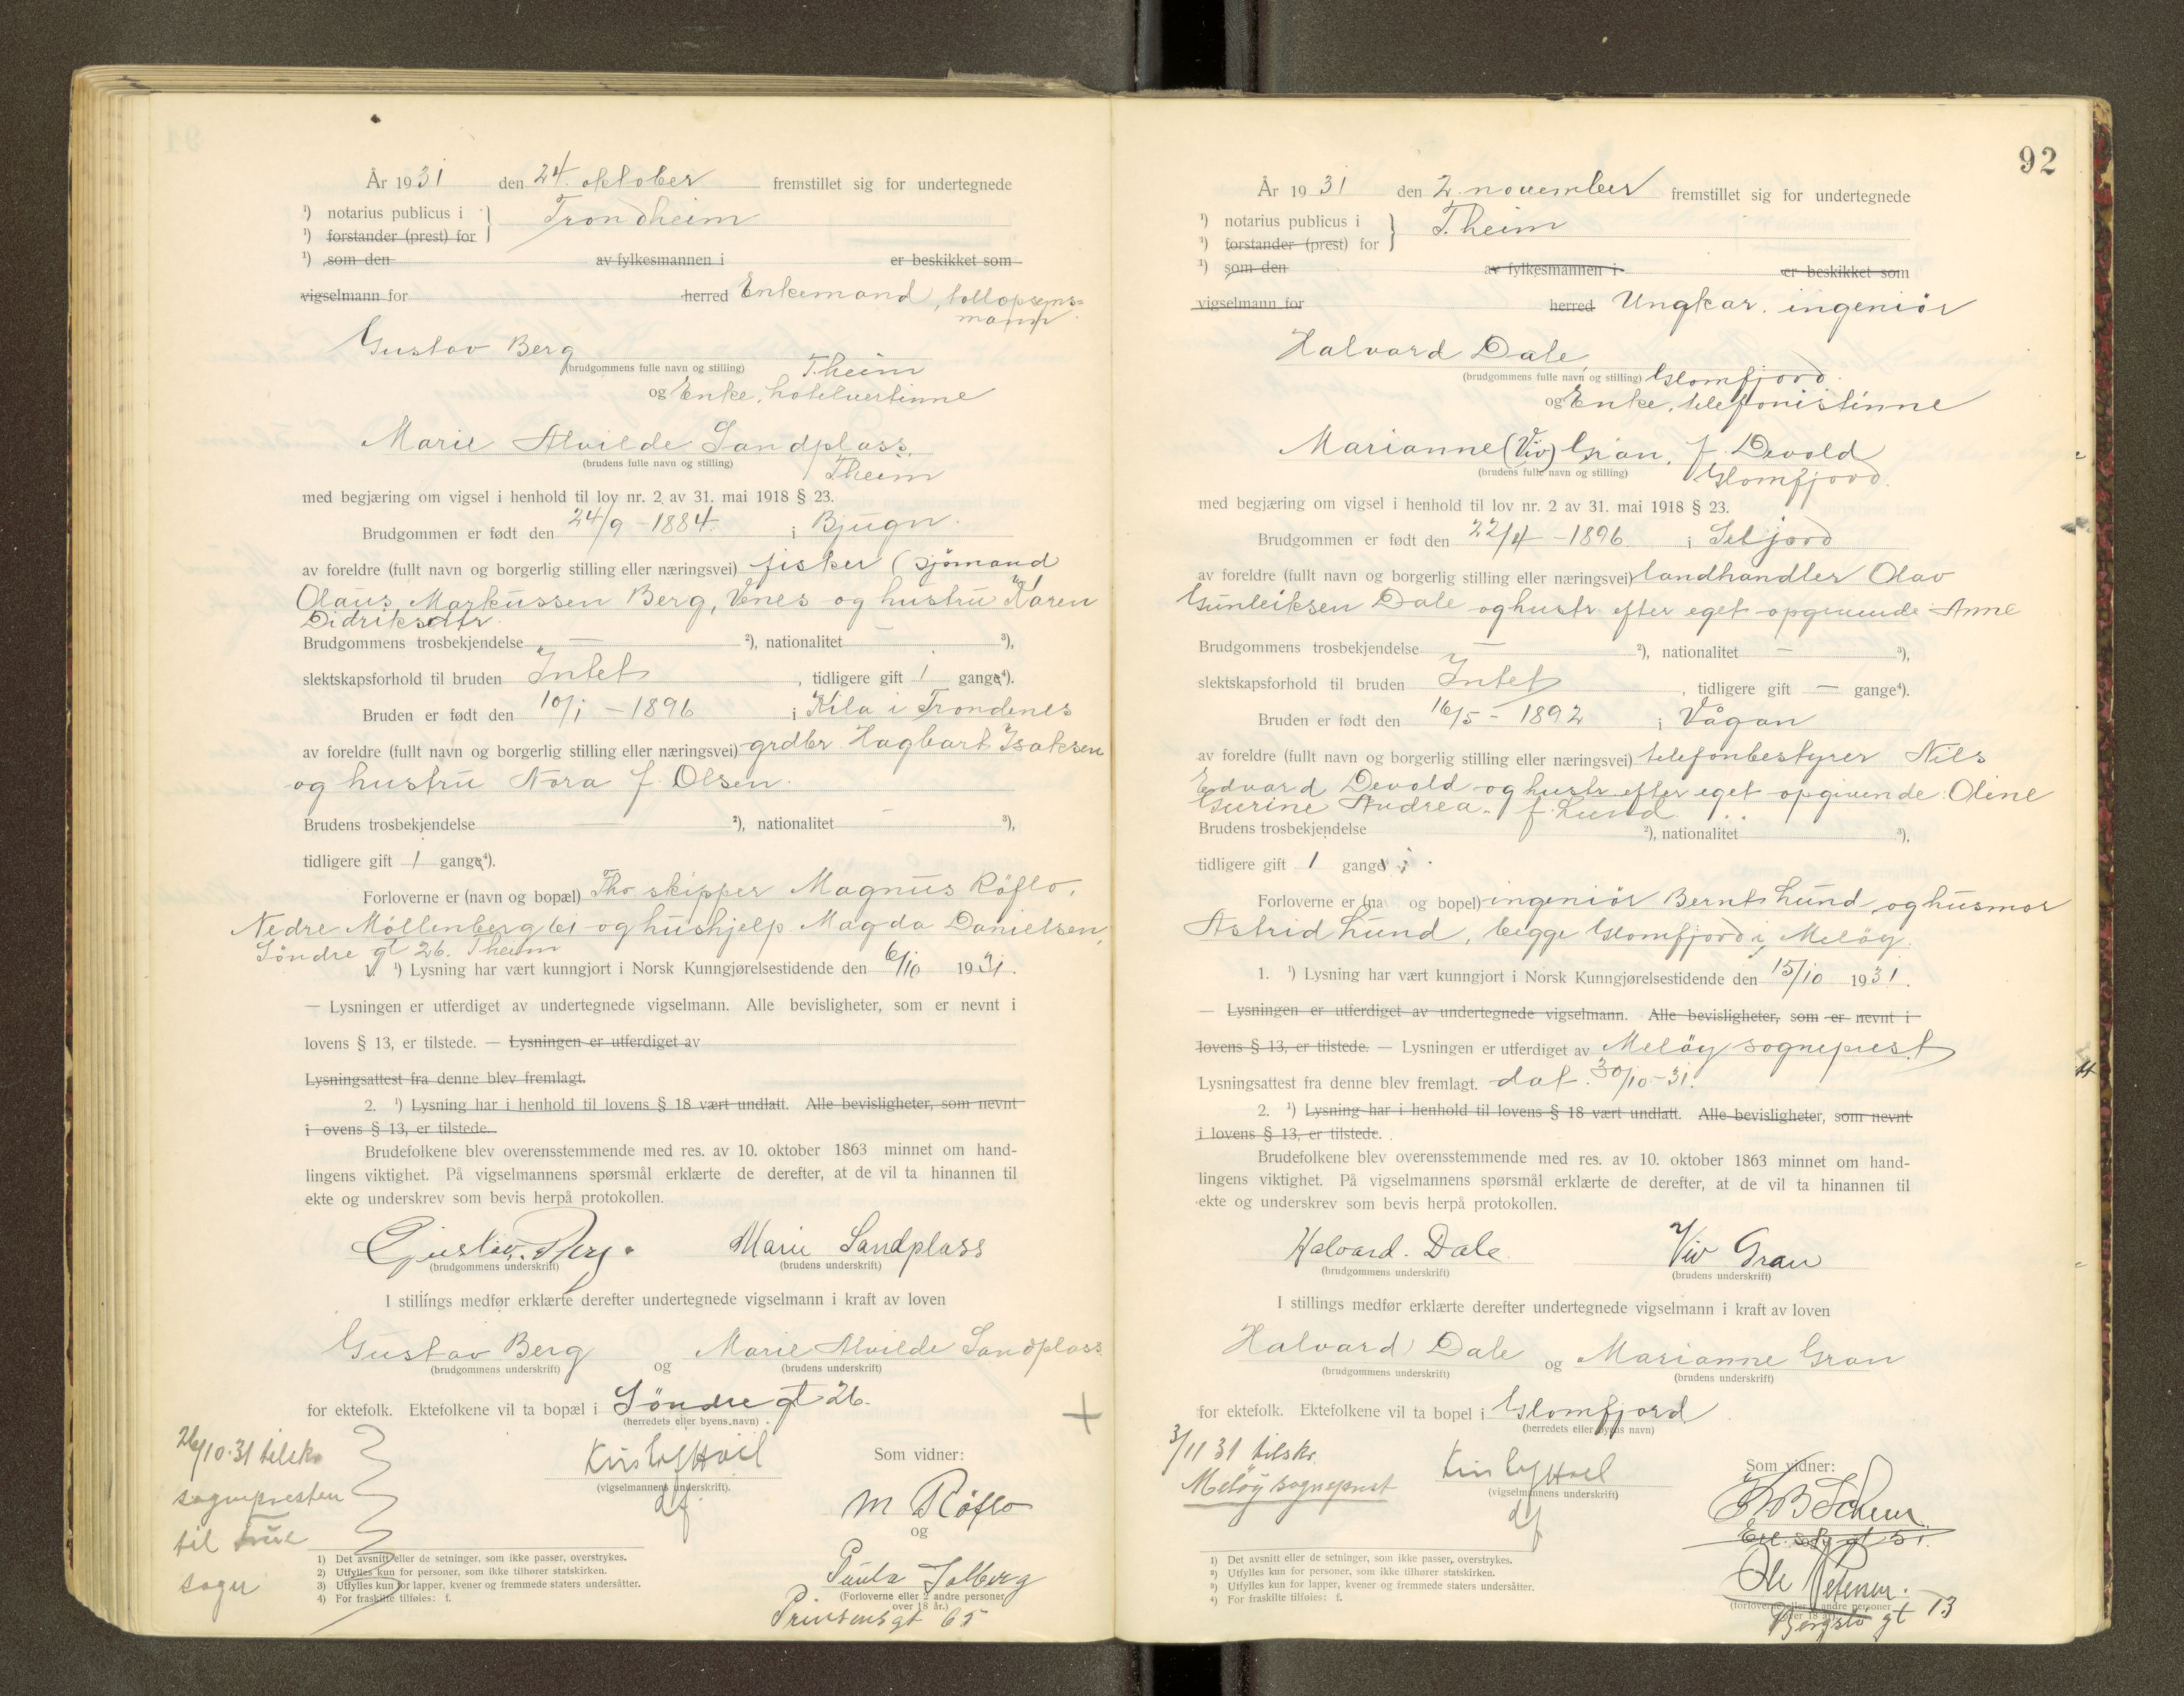 År 1931 den 24. oktober fremstillet sig for undertegnede
¹) notarius publicus i } Trondheim
¹) forstander (prest) for
¹) som den av fylkesmannen i er beskikket som
vigselmann for herred Enkemand, tollopsyns=
mann
Gustav Berg
(brudgommens fulle navn og stilling) T.heim
og Enke, hotelvertinne
Marie Alvilde Sandplass,
(brudens fulle navn og stilling) T.heim
med begjæring om vigsel i henhold til lov nr. 2 av 31. mai 1918 § 23.
Brudgommen er født den 24/9 - 1884. i Bjugn.
av foreldre (fullt navn og borgerlig stilling eller næringsvei) fisker (sjömand
Olaus Markussen Berg, Venes og hustru Karen
Didriksdtr.
Brudgommens trosbekjendelse — ²), nationalitet — ³),
slektskapsforhold til bruden Intet, tidligere gift 1 gange⁴).
Bruden er født den 10/1 - 1896 i Kila i Trondenes
av foreldre (fullt navn og borgerlig stilling eller næringsvei) grdbr. Hagbart Isaksen
og hustru Nora f. Olsen.
Brudens trosbekjendelse — ²), nationalitet — ³),
tidligere gift 1 gange⁴).
Forloverne er (navn og bopæl) Tho skipper Magnus Röflo,
Nedre Möllenberg 61 og hushjelp Magda Danielsen,
Söndre gt 26. T.heim
1. ¹) Lysning har vært kunngjort i Norsk Kunngjørelsestidende den 6/10 1931.
— Lysningen er utferdiget av undertegnede vigselmann. Alle bevisligheter, som er nevnt i
lovens § 13, er tilstede. — Lysningen er utferdiget av
Lysningsattest fra denne blev fremlagt.
2. ¹) Lysning har i henhold til lovens § 18 vært undlatt. Alle bevisligheter, som nevnt
i ovens § 13, er tilstede.
Brudefolkene blev overensstemmende med res. av 10. oktober 1863 minnet om hand-
lingens viktighet. På vigselmannens spørsmål erklærte de derefter, at de vil ta hinannen til
ekte og underskrev som bevis herpå protokollen.
Gustav Berg. Marie Sandplass
(brudgommens underskrift) (brudens underskrift)
I stillings medfør erklærte derefter undertegnede vigselmann i kraft av loven
Gustav Berg og Marie Alvilde Sandplass
(brudgommens underskrift) (brudens underskrift)
for ektefolk. Ektefolkene vil ta bopæl i Söndre gt 26.
(herredets eller byens navn)
26/10-31 tilskr
sognepresten
til
sogn
Som vidner:
(vigselmannens underskrift).
df.
M Röflo
og
Paula Solberg
(Forloverne eller 2 andre personer
over 18 år.)
Prinsensgt 65
1) Det avsnitt eller de setninger, som ikke passer, overstrykes.
2) Utfylles kun for personer, som ikke tilhører statskirken.
3) Utfylles kun for lapper, kvener og fremmede staters undersåtter.
4) For fraskilte tilføies: f.
92
År 1931 den 2. november fremstillet sig for undertegnede
¹) notarius publicus i } T.heim
¹) forstander (prest) for
¹) som den av fylkesmannen i er beskikket som
vigselmann for herred Ungkar, ingeniör
Halvard Dale,
(brudgommens fulle navn og stilling) Glomfjord.
og Enke, telefonistinne
Marianne (Viv) Gran, f. Devold
(brudens fulle navn og stilling) Glomfjord.
med begjæring om vigsel i henhold til lov nr. 2 av 31. mai 1918 § 23.
Brudgommen er født den 22/4 - 1896. i Seljord
av foreldre (fullt navn og borgerlig stilling eller næringsvei) landhandler Olav
Gunleiksen Dale og hustr. efter eget opgivende Anne
Brudgommens trosbekjendelse — ²), nationalitet — ³),
slektskapsforhold til bruden Intet, tidligere gift — gange⁴).
Bruden er født den 16/5 - 1892 i Vågan
av foreldre (fullt navn og borgerlig stilling eller næringsvei) telefonbestyrer Nils
Edvard Devold og hustr. efter eget opgivende Oline
Gurine Andrea f. Lund.
Brudens trosbekjendelse ²), nationalitet ³),
tidligere gift 1 gange
Forloverne er (na og bopel) ingeniör Bernt Lund og husmor
Astrid Lund, begge Glomfjord i Melöy.
1. ¹) Lysning har vært kunngjort i Norsk Kunngjørelsestidende den 15/10 1931.
— Lysningen er utferdiget av undertegnede vigselmann. Alle bevisligheter, som er nevnt i
lovens § 13, er tilstede. — Lysningen er utferdiget av Melöy sogneprest
Lysningsattest fra denne blev fremlagt. dat. 30/10-31.
2. ¹) Lysning har i henhold til lovens § 18 vært undlatt. Alle bevisligheter, som nevnt
i lovens § 13, er tilstede.
Brudefolkene blev overensstemmende med res. av 10. oktober 1863 minnet om hand-
lingens viktighet. På vigselmannens spørsmål erklærte de derefter, at de vil ta hinannen til
ekte og underskrev som bevis herpå protokollen.
Halvard Dale Viv Gran
(brudgommens underskrift) (brudens underskrift)
I stillings medfør erklærte derefter undertegnede vigselmann i kraft av loven
Halvard Dale og Marianne Gran
(brudgommens underskrift) (brudens underskrift)
for ektefolk. Ektefolkene vil ta bopel i Glomfjord
(herredets eller byens navn)
3/11 31 tilskr.
Melöy sogneprest
Som vidner:
(vigselmannens underskrift)
df
gt 51.
Ole Petersen.
(forloverne eller 2 andre personer
over 18 år.)
gt 13
1) Det avsnitt eller de setninger, som ikke passer, overstrykes.
²) Utfylles kun for personer, som ikke tilhører statskirken.
³) Utfylles kun for lapper, kvener og fremmede staters undersåtter.
⁴) For fraskilte tilføies: f.